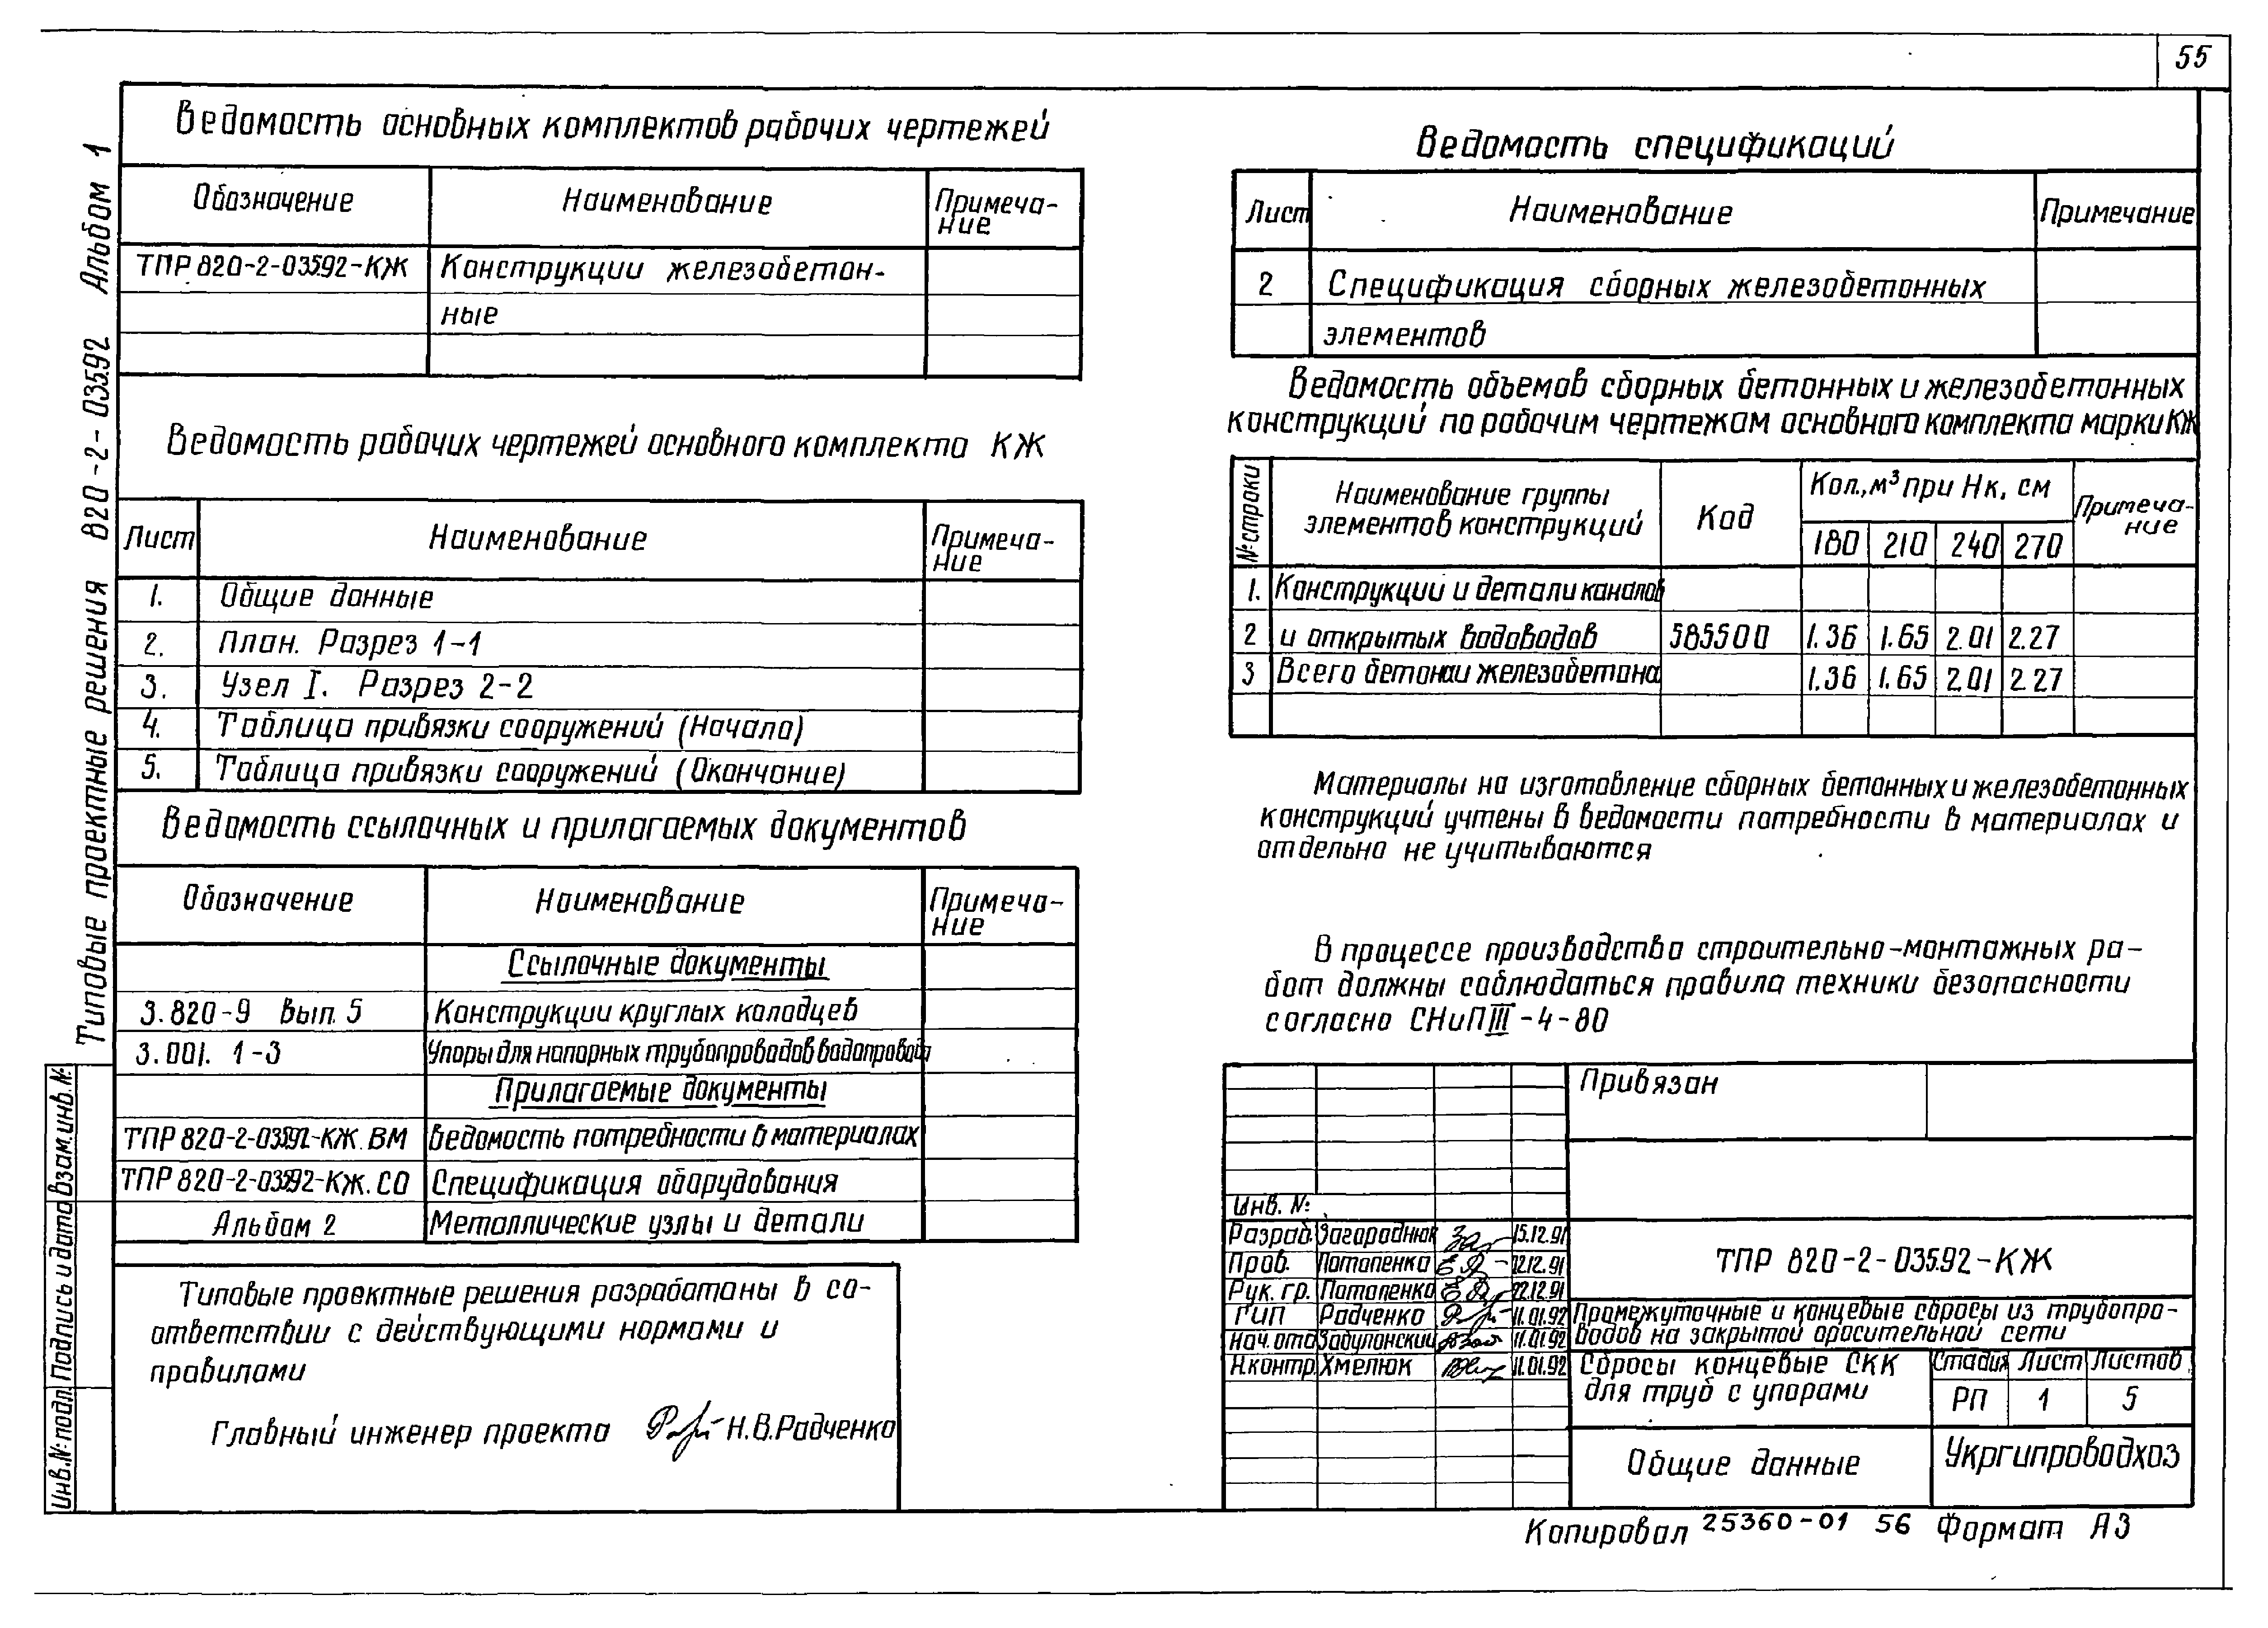 55
Типовые проектные решения 820-2-03592 Альбом 1
Ведомость основных комплектов рабочих чертежей
Обозначение Наименование Примеча-
ние
ТПР 820-2-03592-КЖ Конструкции железобетон-
ные
Ведомость рабочих чертежей основного комплекта КЖ
Лист Наименование Примеча-
ние
1. Общие данные
2. План. Разрез 1-1
3. Узел I. Разрез 2-2
4. Таблица привязки сооружений (Начало)
5. Таблица привязки сооружений (Окончание)
Ведомость ссылочных и прилагаемых документов
Обозначение Наименование Примеча-
ние
Ссылочные документы
3.820-9 Вып. 5 Конструкции круглых колодцев
3.001. 1-3 Упоры для напорных трубопроводов водопровода
Прилагаемые документы
ТПР 820-2-03592-КЖ.ВМ Ведомость потребности в материалах
ТПР 820-2-03592-КЖ.СО Спецификация оборудования
Альбом 2 Металлические узлы и детали
Типовые проектные решения разработаны в со-
ответствии с действующими нормами и
правилами
Главный инженер проекта Н.В.Радченко
Взам.инв.№
Подпись и дата
Инв.№ подл.
Ведомость спецификаций
Лист Наименование Примечание
2 Спецификация сборных железобетонных
элементов
Ведомость объемов сборных бетонных и железобетонных
конструкций по рабочим чертежам основного комплекта марки КЖ
№ строки Наименование группы
элементов конструкций Код Кол.,м³ при Нк, см Примеча-
ние
180 210 240 270
1. Конструкции и детали каналов
2 и открытых водоводов 585500 1.36 1.65 2.01 2.27
3 Всего бетона и железобетона 1.36 1.65 2.01 2.27
Материалы на изготовление сборных бетонных и железобетонных
конструкций учтены в ведомости потребности в материалах и
отдельно не учитываются
В процессе производства строительно-монтажных ра-
бот должны соблюдаться правила техники безопасности
согласно СНиП III-4-80
Привязан
Инв. №:
Разраб. Загороднюк 15.12.91
Пров. Потапенко 22.12.91
Рук. гр. Потапенко 22.12.91
ГИП Радченко 11.01.92
Нач. отд Забулонский 11.01.92
Н.контр. Хмелюк 11.01.92
ТПР 820-2-03592-КЖ
Промежуточные и концевые сбросы из трубопро-
водов на закрытой оросительной сети
Сбросы концевые СКК
для труб с упорами
Стадия Лист Листов
РП 1 5
Общие данные
Укргипроводхоз
Копировал 25360-01 56 Формат А3